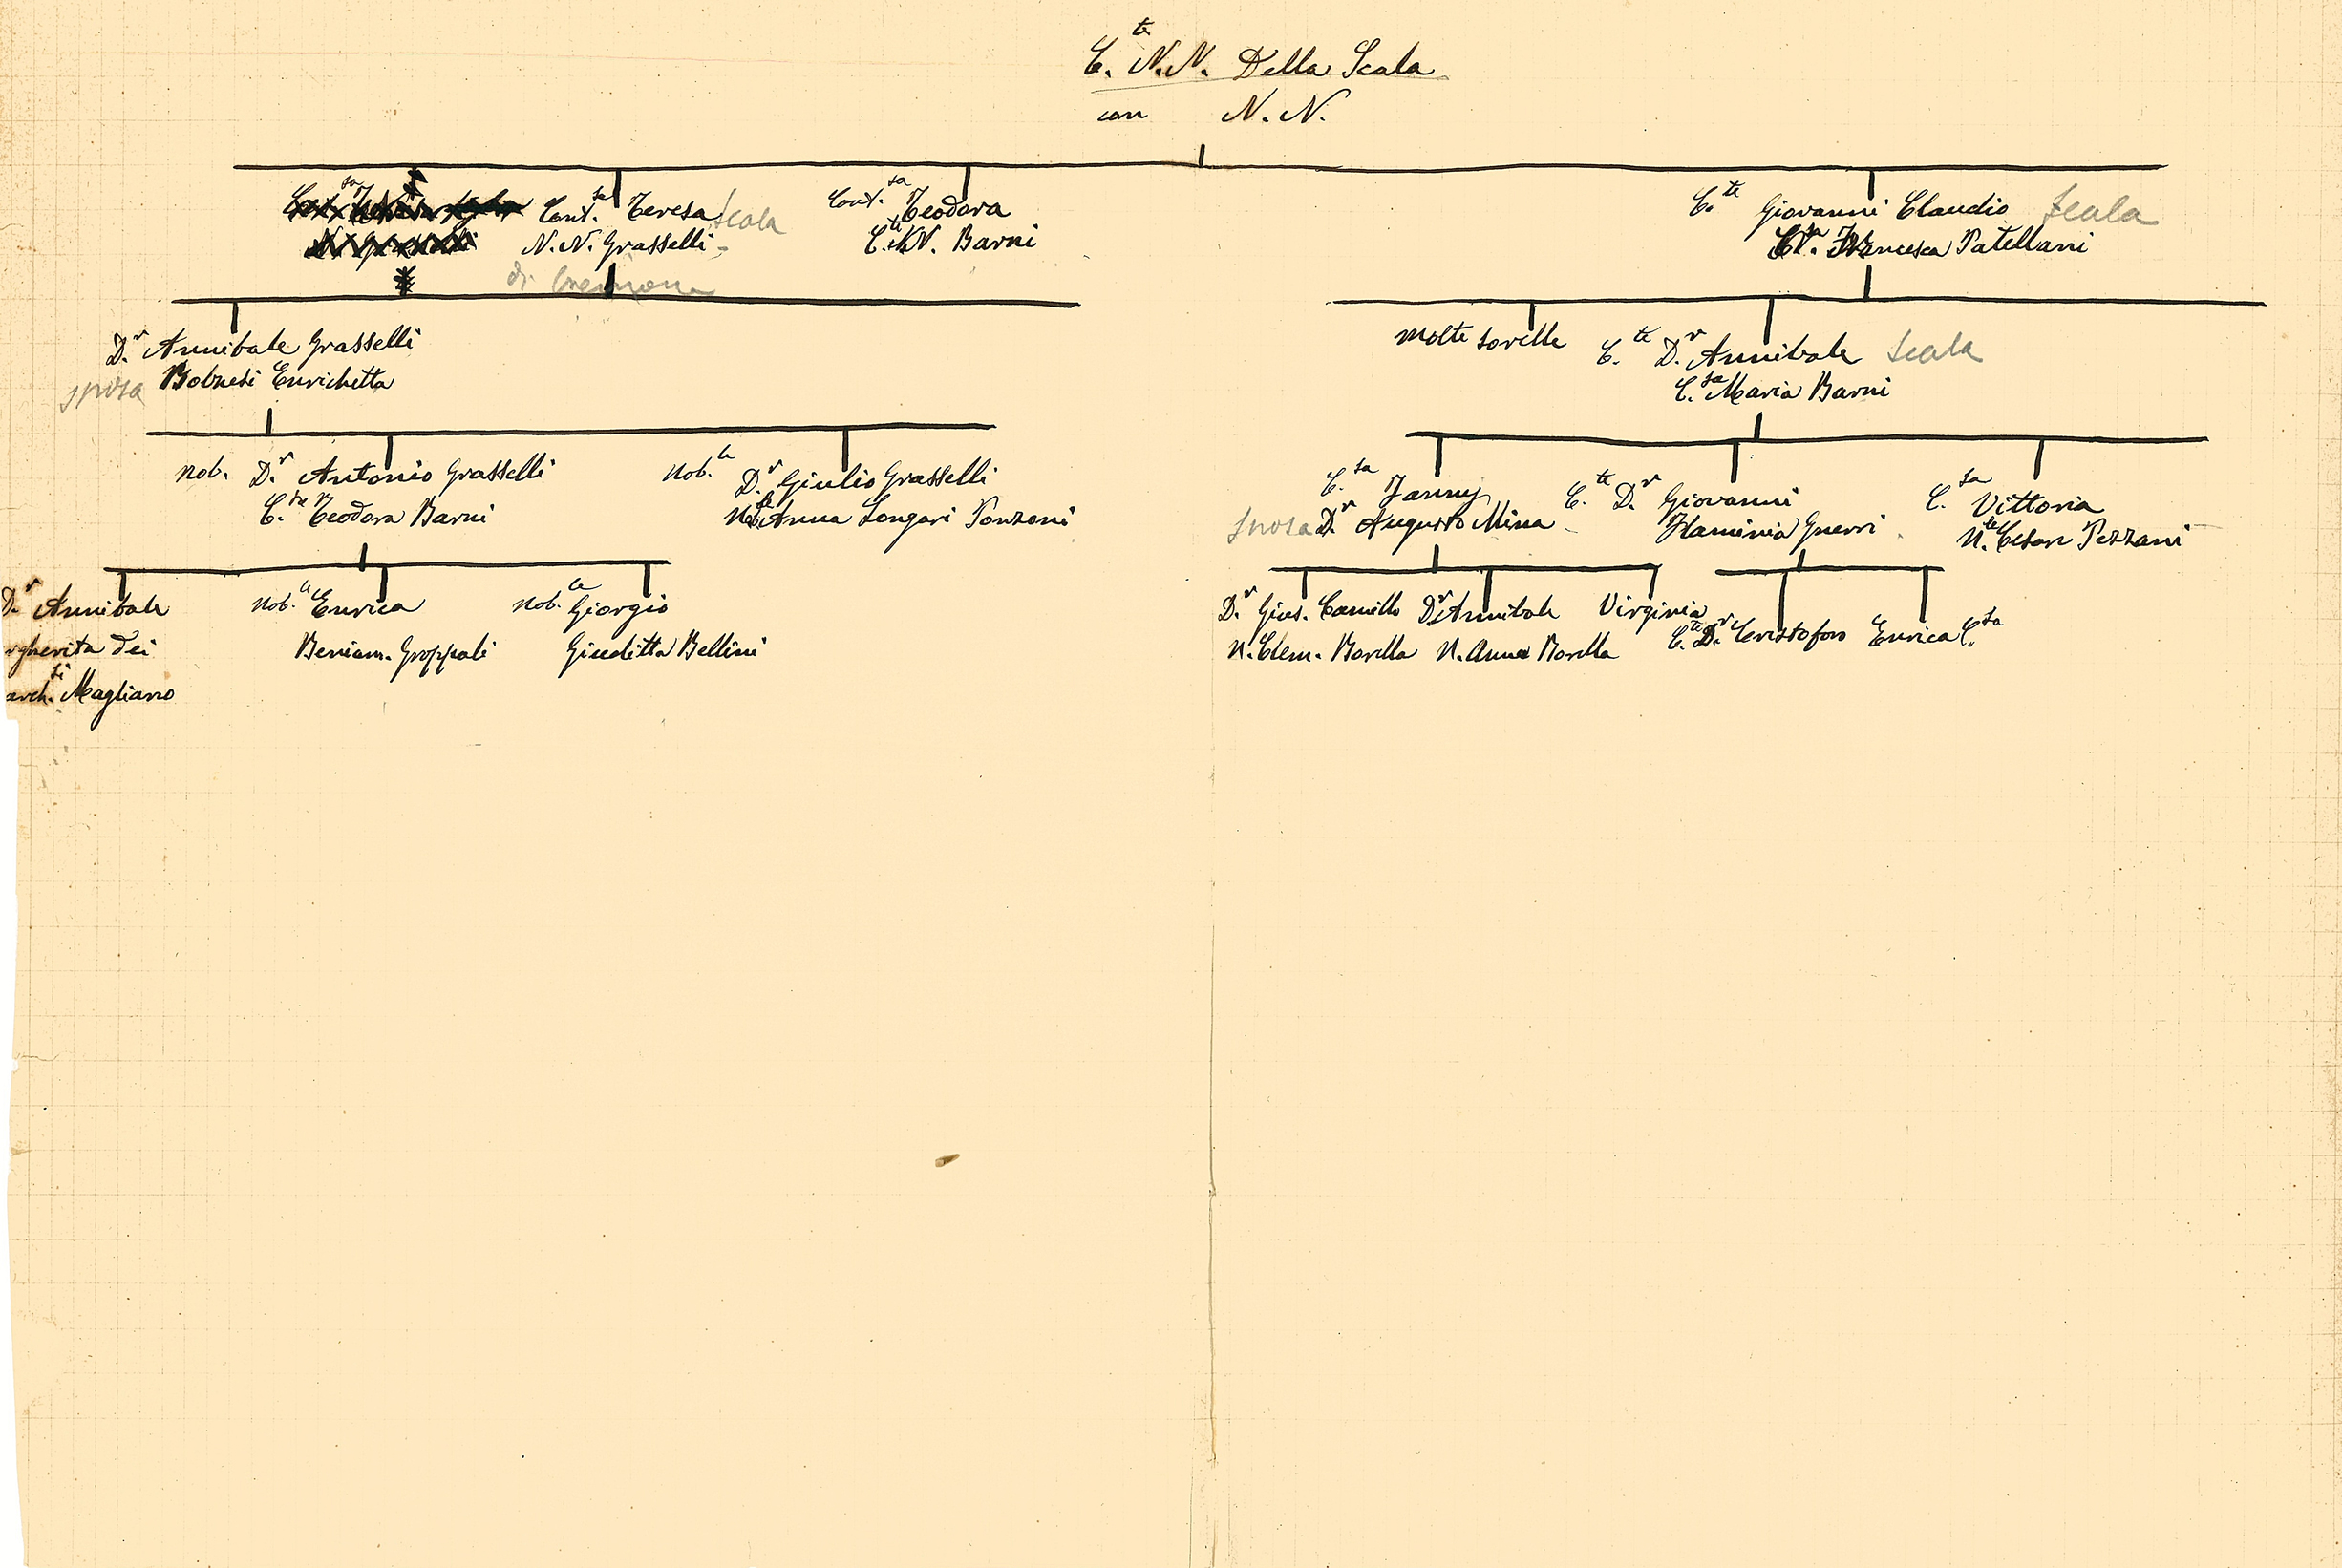 C.te N.N. Della Scala
con N. N.
Cont.sa Teresa Scala
N.N. Grasselli
di Cremona
Cont.sa Teodora
C.te N.N. Barni
C.te Giovanni Claudio Scala
Francesca Patellani
D.r Annibale Grasselli
sposa Enrichetta
Molte sorelle
C.te D.r Annibale Scala
C.sa Maria Barni
Nob. D.r Antonio Grasselli
C.sa Teodora Barni
Nob.le D.r Giulio Grasselli
Anna Longari Ponzoni
C.sa Fanny
sposa D.r Augusto Mina
C.te D.r Giovanni
Flaminia Guerri
C.sa Vittoria
N.le Cesare Pezzani
D.r Annibale
rgherita dei
arch.si Magliano
Nob.le Enrica
Beniam. Groppali
Nob.le Giorgio
Giuditta Bellini
D.r Gius. Camillo
N. Clem. Borella
D.r Annibale
N. Anna Borella
Virginia
C.te D.r Cristoforo
Enrica C.sa